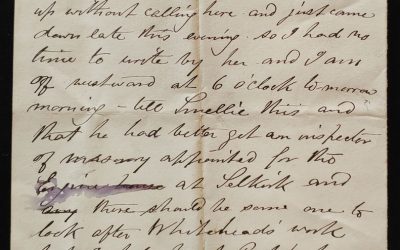 up without calling here and just came
down late this evening. so I had no
time to write by her and I am
off westward at 6 o'clock tomorrow
morning – tell Smellie this and
that he had better get an inspector
of masonry appointed for the
Engine house at Selkirk and
any there should be some one to
look after Whiteheads' work